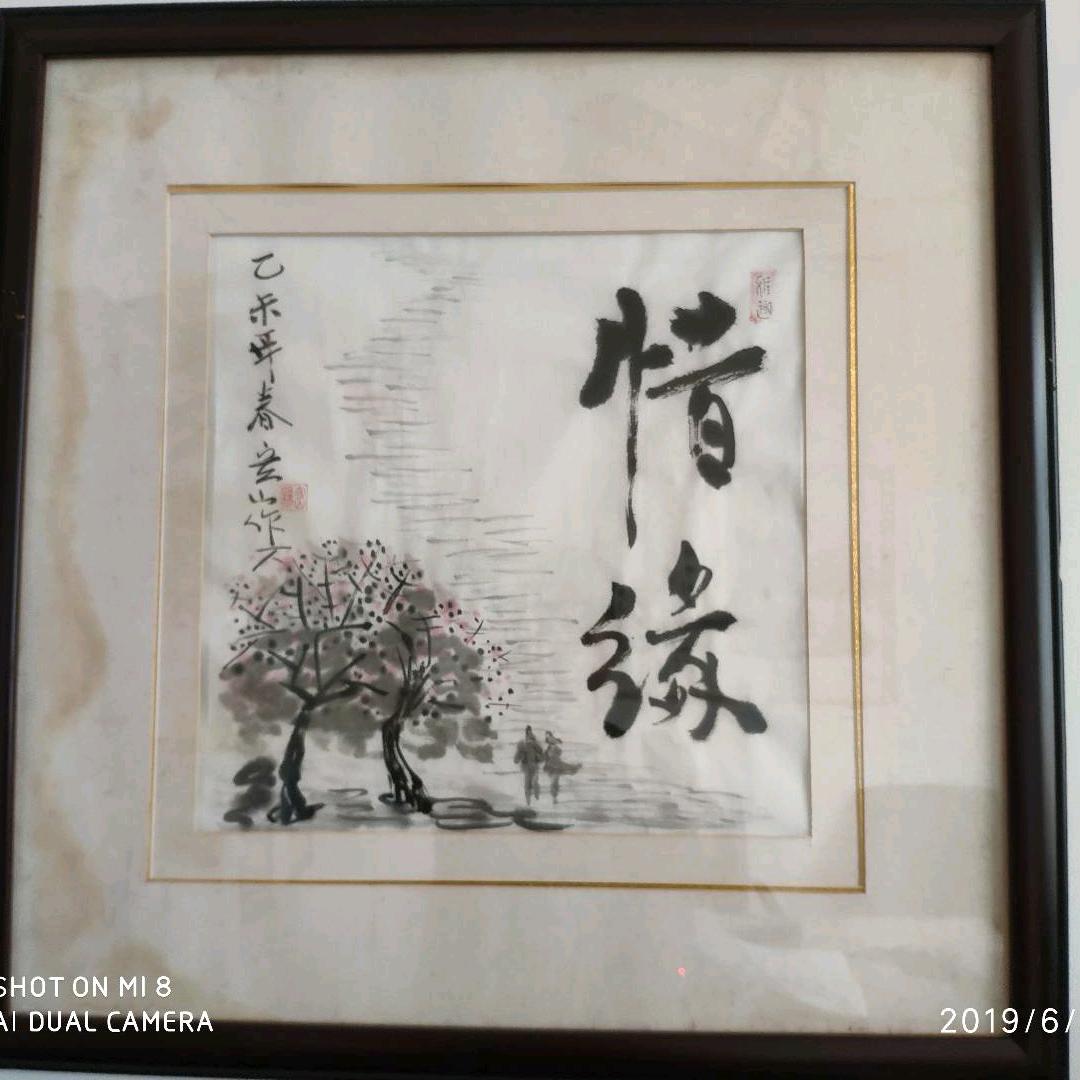 惜緣
乙未年春立山作
SHOT ON MI 8
AI DUAL CAMERA
2019/6/